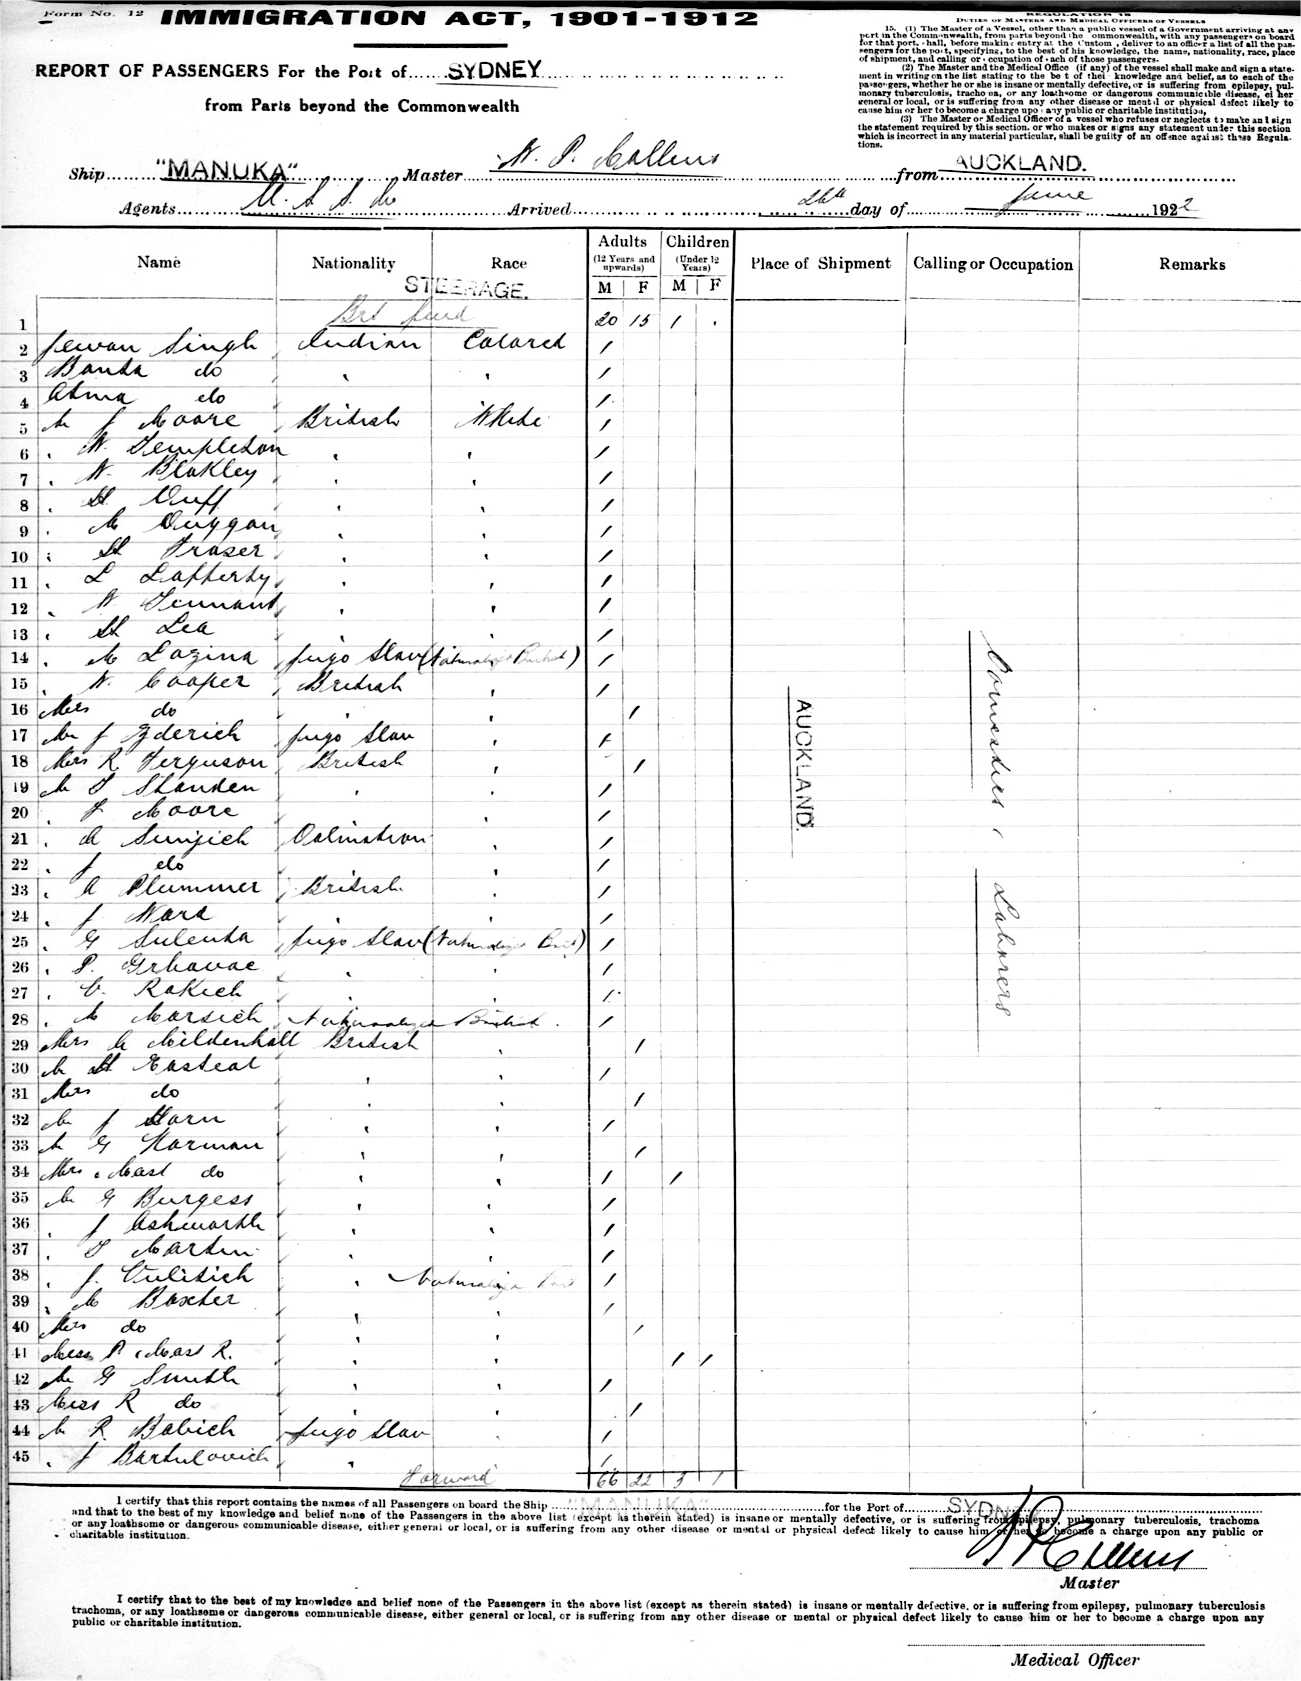 Form No. 12
IMMIGRATION ACT, 1901-1912
REPORT OF PASSENGERS For the Port of SYDNEY
from Parts beyond the Commonwealth
REGULATION 15
DUTIES OF MASTERS AND MEDICAL OFFICERS OF VESSELS
15. (1) The Master of a Vessel, other than a public vessel of a Government arriving at any
port in the Commonwealth, from parts beyond the Commonwealth, with any passengers on board
for that port, shall, before making entry at the Customs, deliver to an officer a list of all the pas-
sengers for the port, specifying, to the best of his knowledge, the name, nationality, race, place
of shipment, and calling or occupation of each of those passengers.
(2) The Master and the Medical Office (if any) of the vessel shall make and sign a state-
ment in writing on the list stating to the best of their knowledge and belief, as to each of the
passengers, whether he or she is insane or mentally defective, or is suffering from epilepsy, pul-
monary tuberculosis, trachoma, or any loathsome or dangerous communicable disease, either
general or local, or is suffering from any other disease or mental or physical defect likely to
cause him or her to become a charge upon any public or charitable institution,
(3) The Master or Medical Officer of a vessel who refuses or neglects to make and sign
the statement required by this section, or who makes or signs any statement under this section
which is incorrect in any material particular, shall be guilty of an offence against these Regula-
tions.
Ship "MANUKA" Master W. P. Collins from AUCKLAND.
Agents U. S. S. Co Arrived 26th day of June 1922
Name Nationality Race Adults (12 Years and upwards) M F Children (Under 12 Years) M F Place of Shipment Calling or Occupation Remarks
STEERAGE.
1 Brt fwd 20 15 1 .
2 Jewan Singh Indian Colored /
3 Banta do " " /
4 Atma do /
5 Mr J Moore British White /
6 " W. Templeton " " /
7 " W. Blakley " " /
8 " H Duff " " /
9 " M Duggan " " /
10 " H Fraser " " /
11 " L Lafferty " " /
12 " W Tennant " " /
13 " H Lea " " /
14 " M Lozina Jugo Slav (Naturalized British) /
15 " W. Cooper British " /
16 Mrs do " " /
17 Mr J Zderich Jugo Slav " /
18 Mrs R. Ferguson British " /
19 Mr T Standen " " /
20 " F Moore " /
21 " A Sunjich Dalmation " /
22 " J do " /
23 " A Plummer British " /
24 " J Ward " " /
25 " G Sulenta Jugo Slav (Naturalized Brit) /
26 " P. Grbavac " " /
27 " V. Rakich " " /
28 " M Marsich Naturalized British /
29 Mrs C Mildenhall British " /
30 Mr H Easteal " " /
31 Mrs do " " /
32 Mr J Horn " " /
33 Mr G Harman " " /
34 Mrs & Mast do " " / /
35 Mr G Burgess " " /
36 " J Ashworth " " /
37 " T Martin " " /
38 " J. Vulitich " Naturalized Brit /
39 " M Boxter " " /
40 Mrs do " " /
41 Miss P. & Mast R. " " / /
42 Mr G Smith " " /
43 Miss R do " " /
44 Mr R. Babich Jugo Slav " /
45 " J Bartulovich " /
Forward 66 22 3 1
AUCKLAND.
Domestics &
Labourers
I certify that this report contains the names of all Passengers on board the Ship "MANUKA" for the Port of SYDNEY
and that to the best of my knowledge and belief none of the Passengers in the above list (except as therein stated) is insane or mentally defective, or is suffering from epilepsy, pulmonary tuberculosis, trachoma
or any loathsome or dangerous communicable disease, either general or local, or is suffering from any other disease or mental or physical defect likely to cause him or her to become a charge upon any public or
charitable institution.
W P Collins
Master
I certify that to the best of my knowledge and belief none of the Passengers in the above list (except as therein stated) is insane or mentally defective, or is suffering from epilepsy, pulmonary tuberculosis
trachoma, or any loathsome or dangerous communicable disease, either general or local, or is suffering from any other disease or mental or physical defect likely to cause him or her to become a charge upon any
public or charitable institution.
Medical Officer